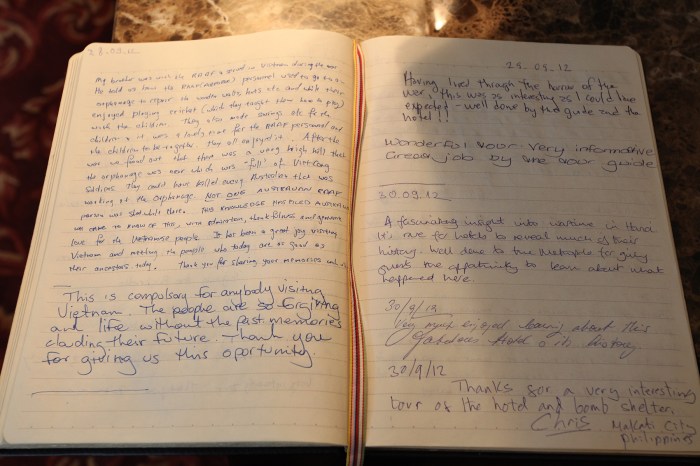 28.09.12
My brother was with the RAAF & served in Vietnam during the war
He told us how the RAAF personnel used to go to a
orphanage to repair the beds etc and while there
enjoyed playing cricket (which they taught them how to play)
with the children. They also made swings etc for the
children & it was a lovely time for the RAAF personnel and
the children to be together. They all enjoyed it. After the
war we found out that there was a very high hill that
the orphanage was near which was "full" of Vietcong
Soldiers. They could have killed every Australian that was
working at the Orphanage. NOT ONE AUSTRALIAN RAAF
person was shot while there. THIS KNOWLEDGE
we came to know of this, with admiration, thankfulness and genuine
love for the Vietnamese people. It has been a great joy visiting
Vietnam and meeting the people who today are as good as
their ancestors today. Thank you for sharing your memories with
This is compulsory for anybody visiting
Vietnam. The people are so forgiving
and life without the past memories
clouding their future. Thank you
for giving us this oportunity.
29.09.12
Having lived through the horror of the
war, this was as interesting as I could have
expected - well done by the guide and the
hotel!!
Wonderful tour very informative
Great job by the tour guide
30.09.12
A fascinating insight into wartime in Hanoi
It's rare for hotels to reveal much of their
history. Well done to the Metropole for giving
guests the opportunity to learn about what
happened here
30/9/12
Very much enjoyed hearing about this
fabulous Hotel & its history
30/9/12
Thanks for a very interesting
tour of the hotel and bomb shelter.
Chris Makati City
Philippines